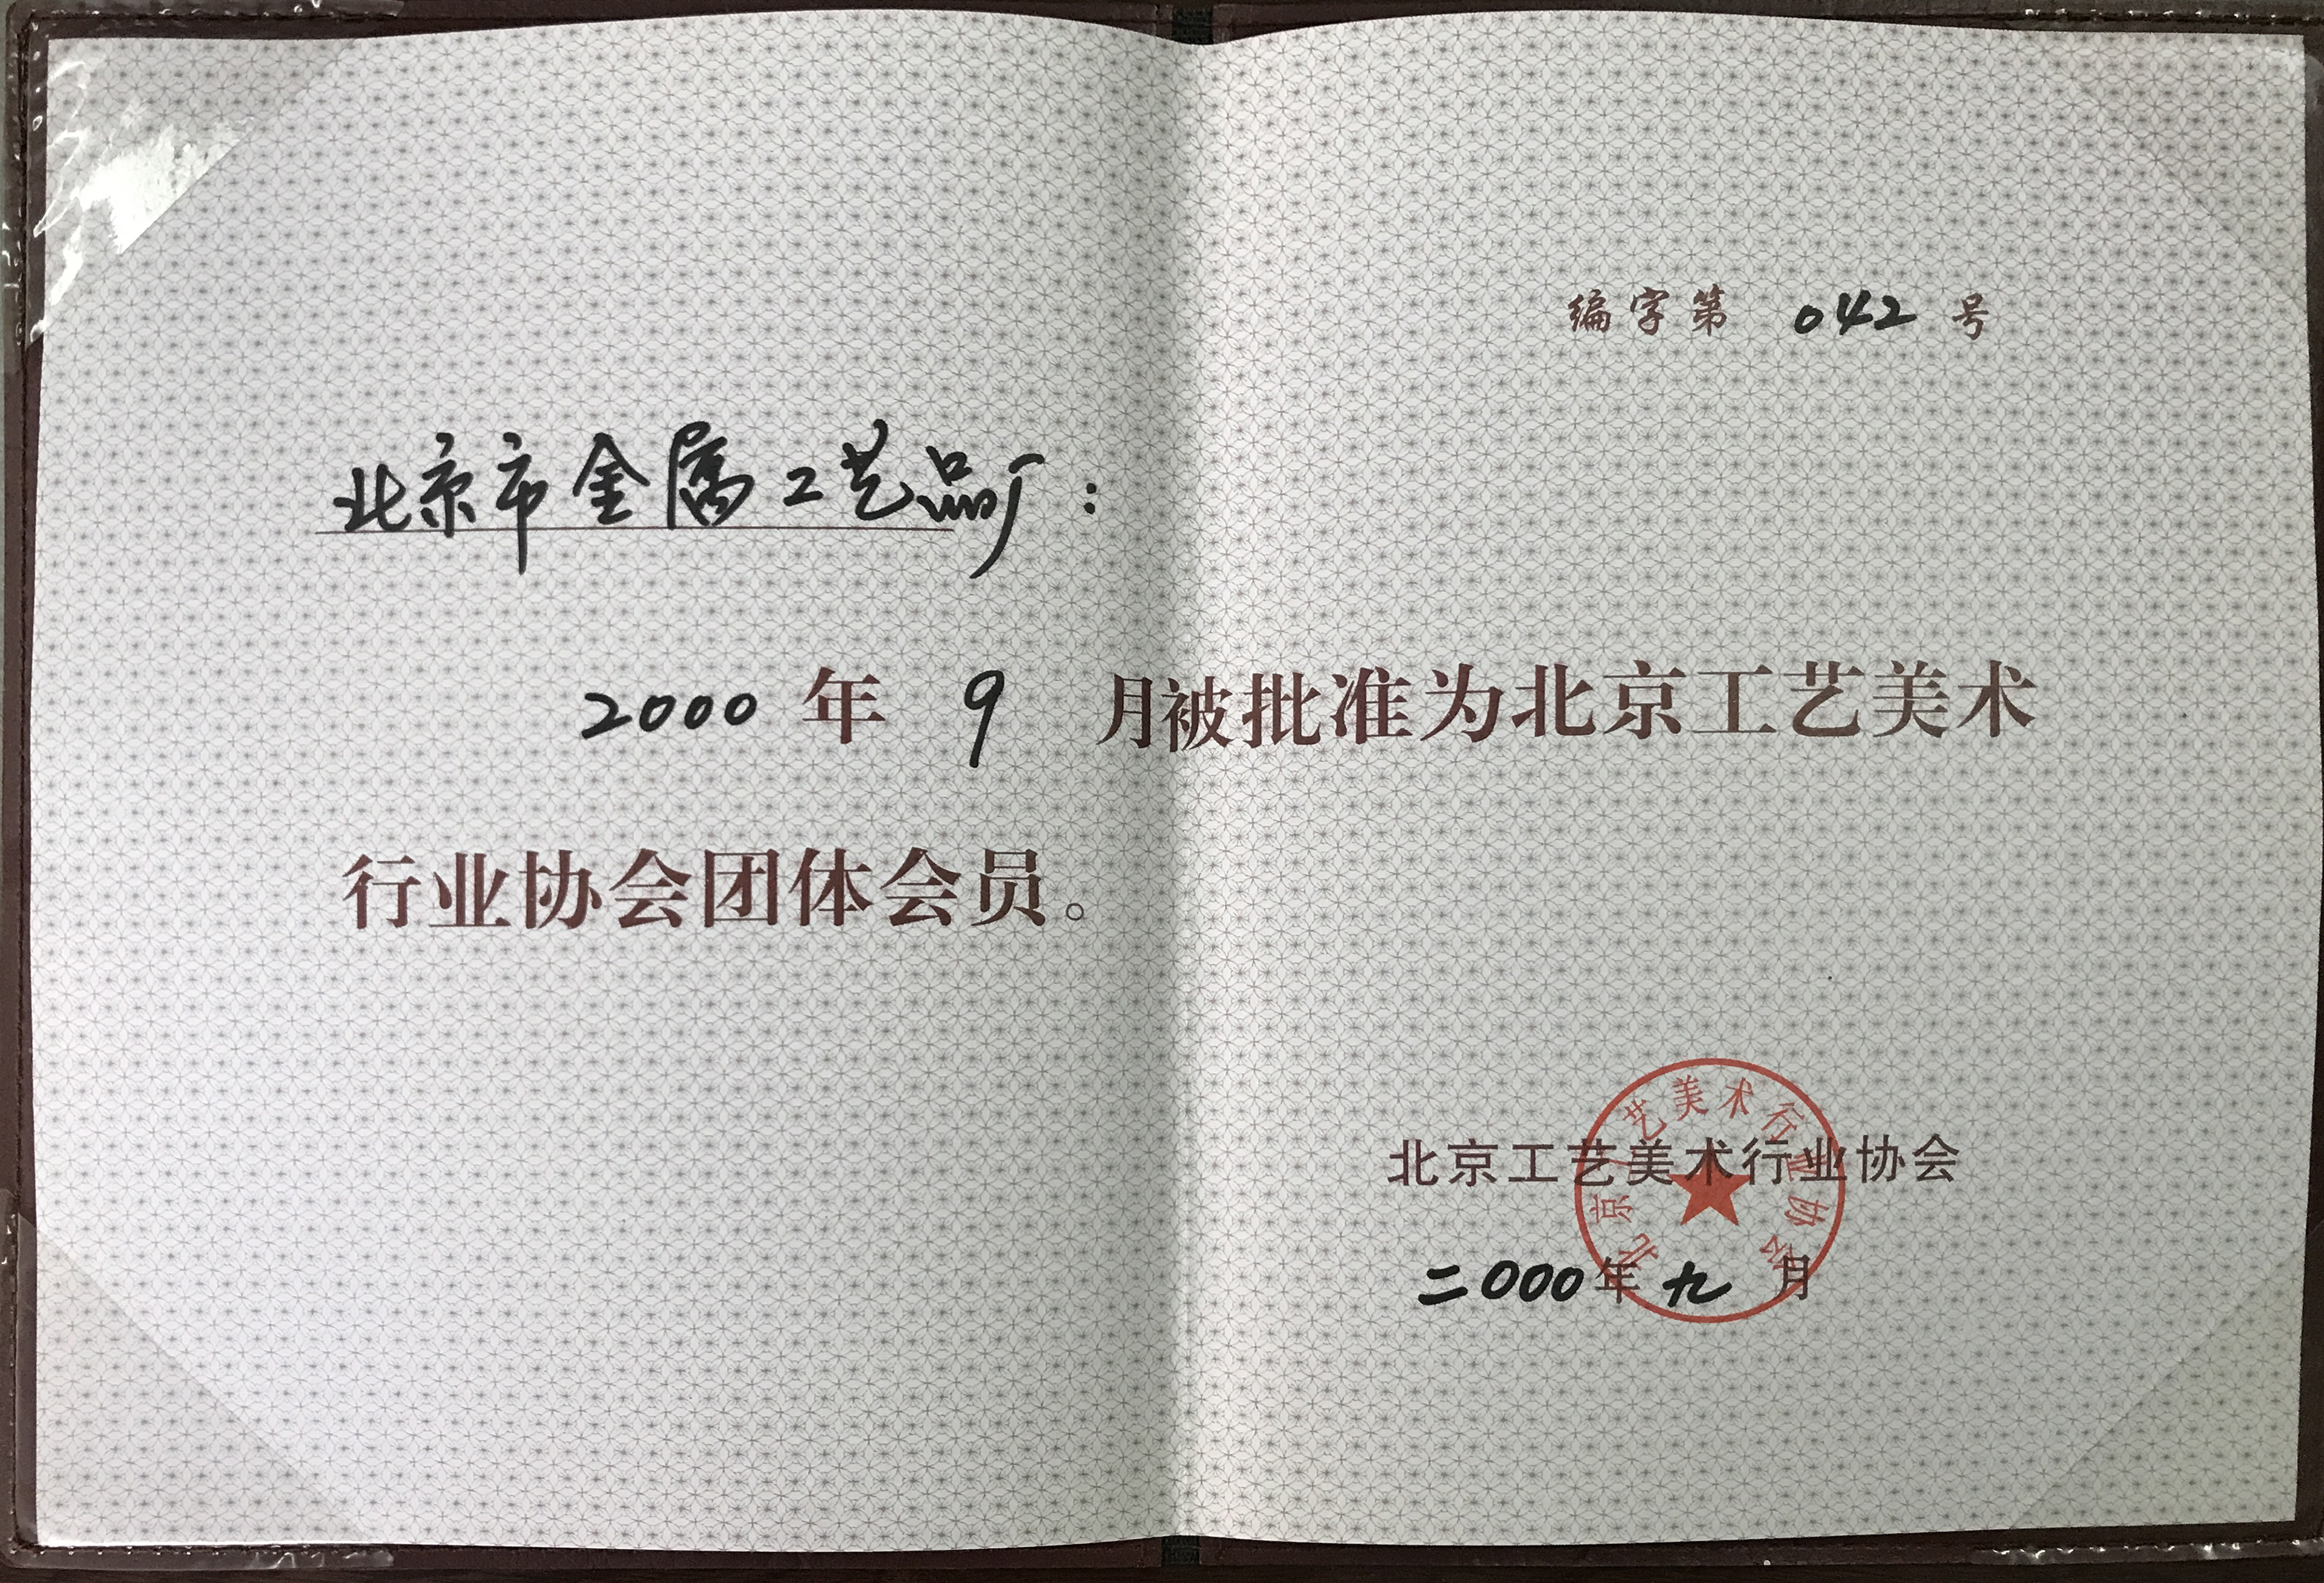 编字第 042 号
北京市金属工艺品厂：
2000 年 9 月被批准为北京工艺美术
行业协会团体会员。
北京工艺美术行业协会
北京工艺美术行业协会
二000年九月